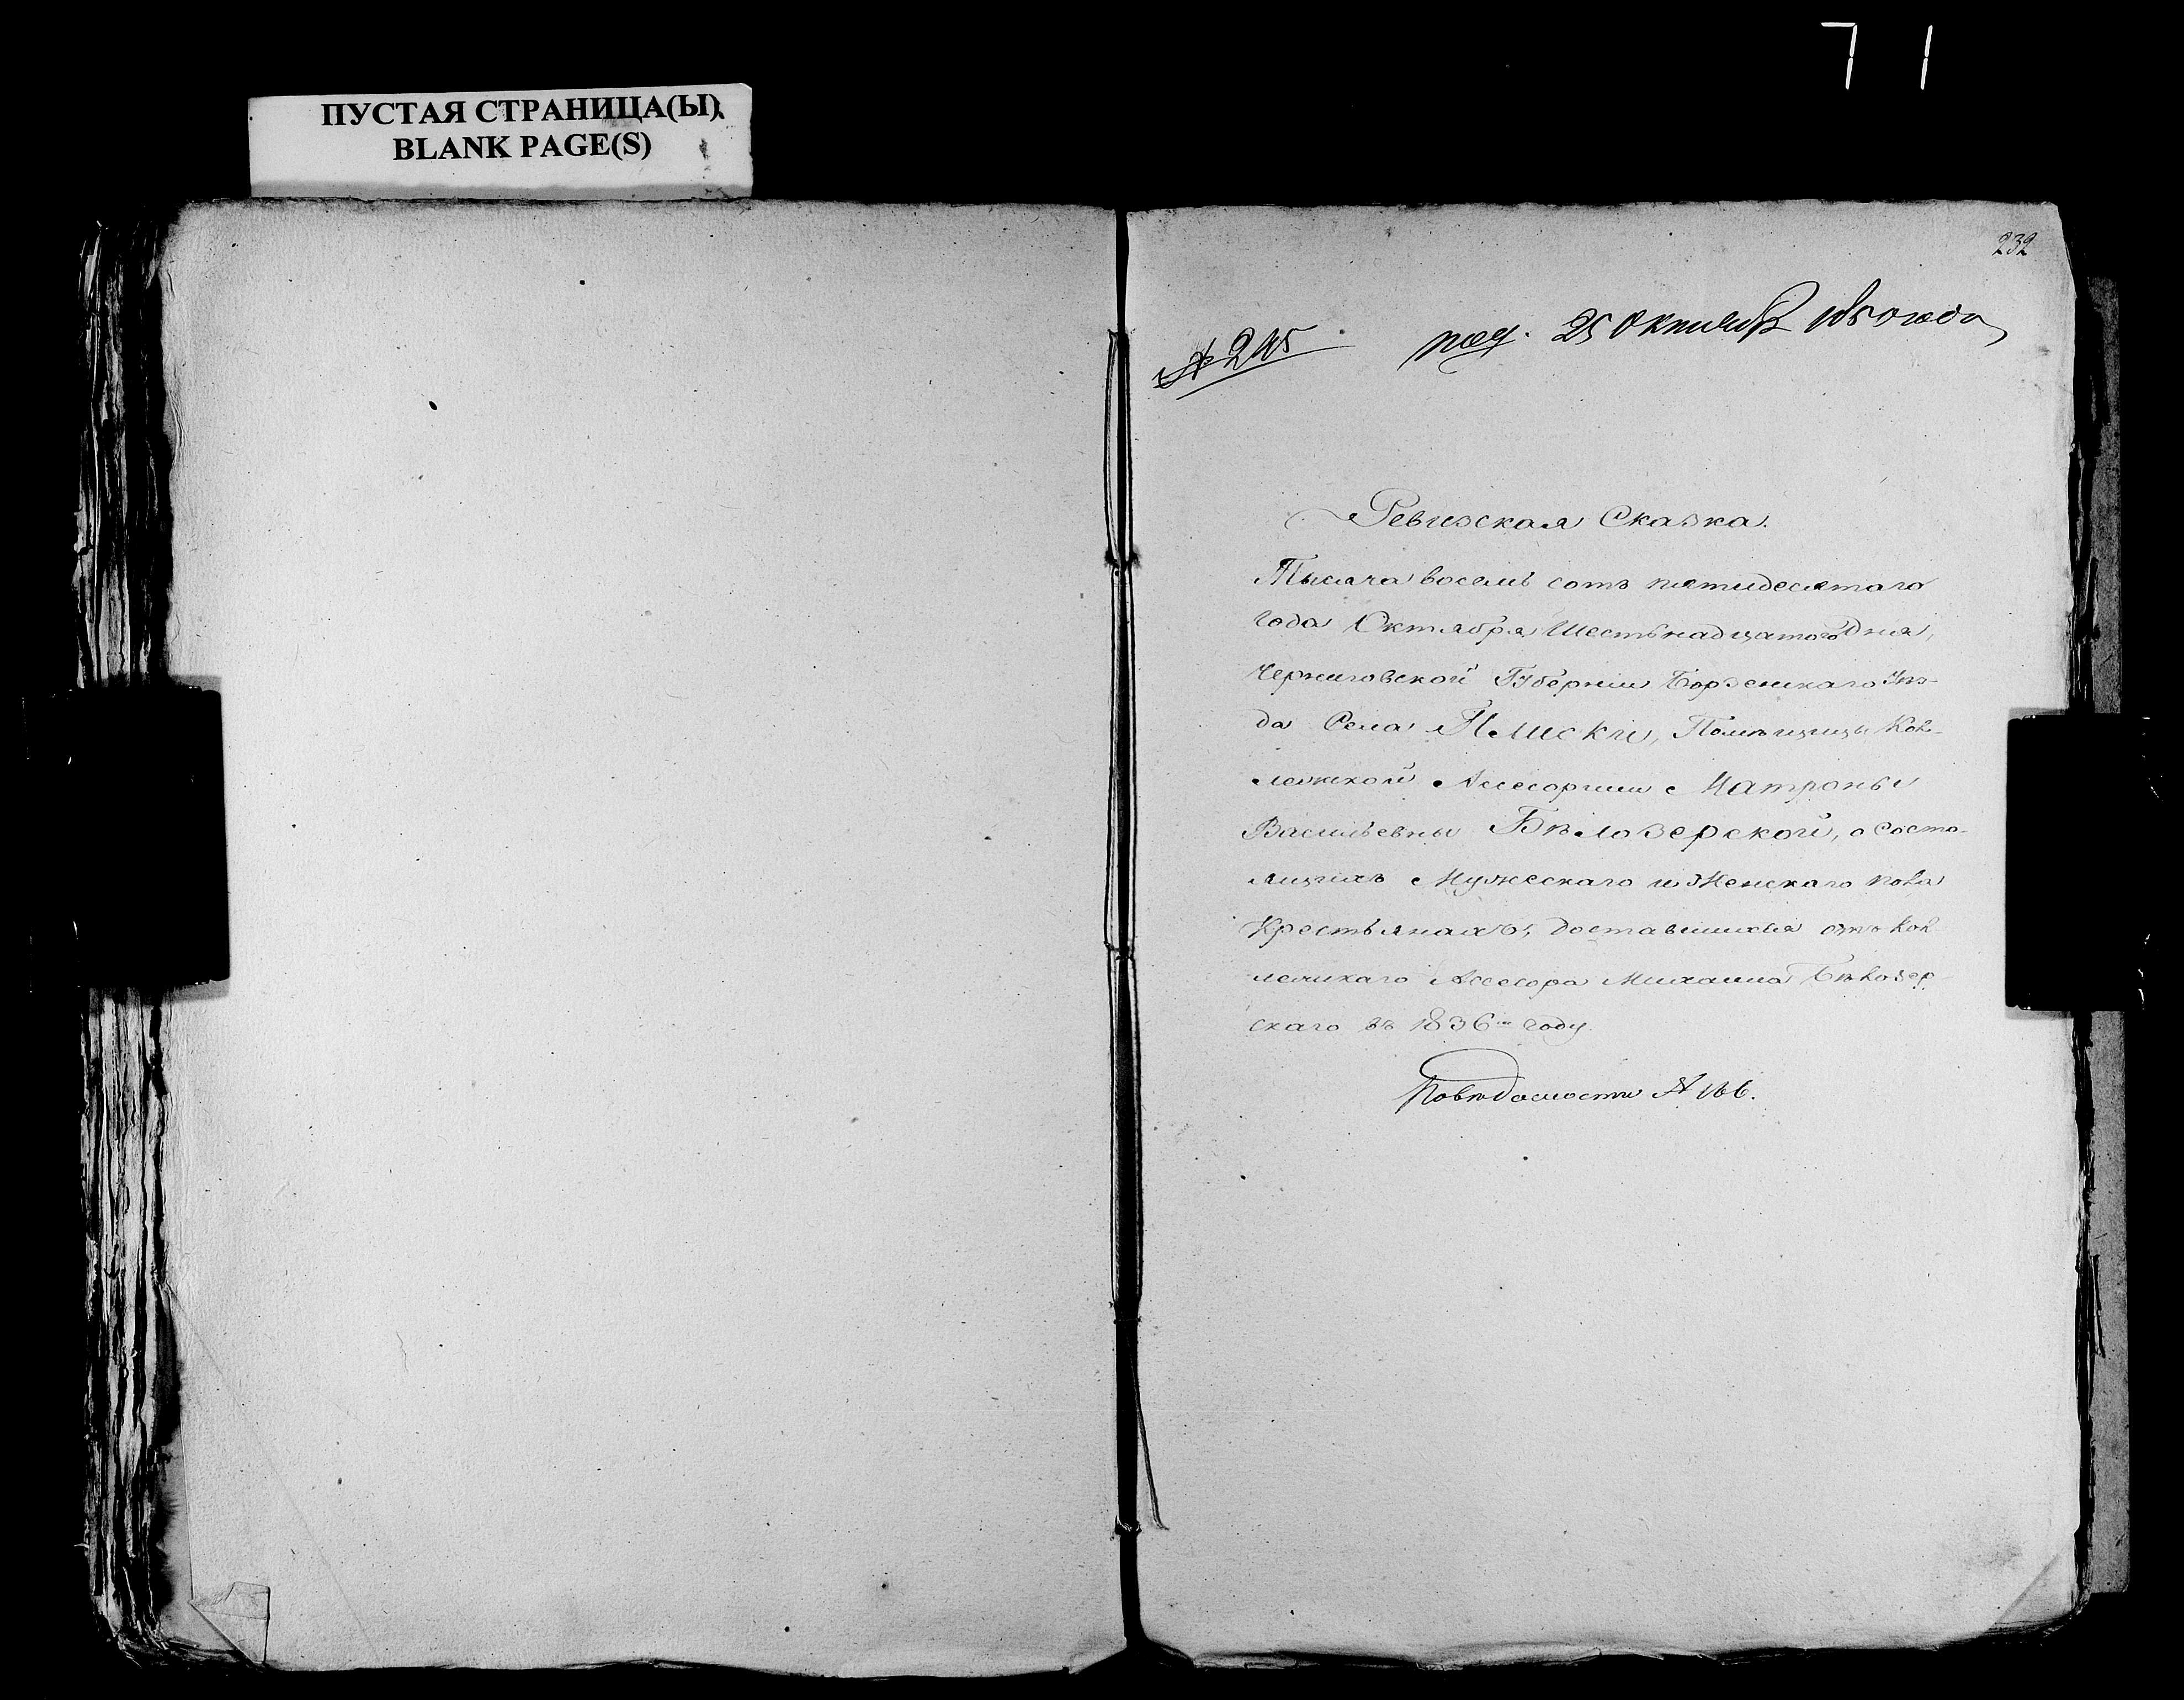 71
ПУСТАЯ СТРАНИЦА(Ы)
BLANK PAGE(S)
232
№ 245 под. 25 Октября 1850 года
Ревизская Сказка.
Тысяча восемь сотъ пятидесятаго
года Октября Шестьнадцатого Дня,
Черниговской Губерніи Борзенскаго Уѣз-
да Села Плиски, Помѣщицы Кол-
лежской Асесорши Матроны
Васильевны Бѣлозерской, о Состо-
ящихъ Мужескаго и Женскаго пола
Крестьянахъ, доставшихся отъ Кол
лежскаго Асесора Михаила Бѣлозер
скаго въ 1836 году.
По вѣдомости № 166.